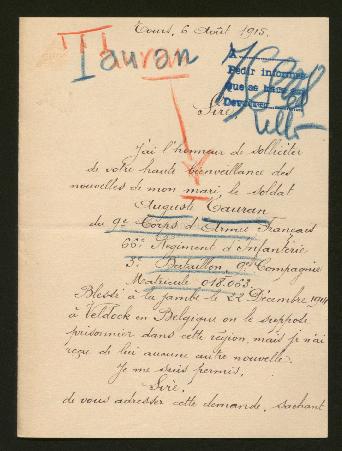 Tours, 6 Août 1915.
III
Tauran
A
Pedir informes
Que se hace en
Sire,
J'ai l'honneur de solliciter
de votre haute bienveillance des
nouvelles de mon mari, le soldat
Auguste Tauran
du 9e Corps d'Armée Français
66e Régiment d'Infanterie
3e Bataillon, Compagnie
Matricule 018.063.
Blessé à la jambe le 22 Décembre 1914
à Veldock en Belgique on le suppose
prisonnier dans cette région, mais je n'ai
reçue de lui aucune autre nouvelle.
Je me suis permis,
Sire,
de vous adresser cette demande, sachant